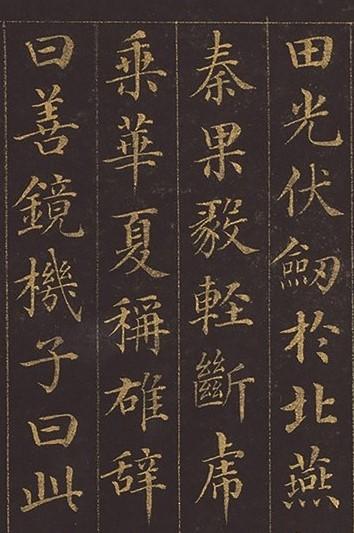 田光伏劒於北燕
秦果毅輕斷虎
乘華夏稱雄辞
曰善鏡機子曰此